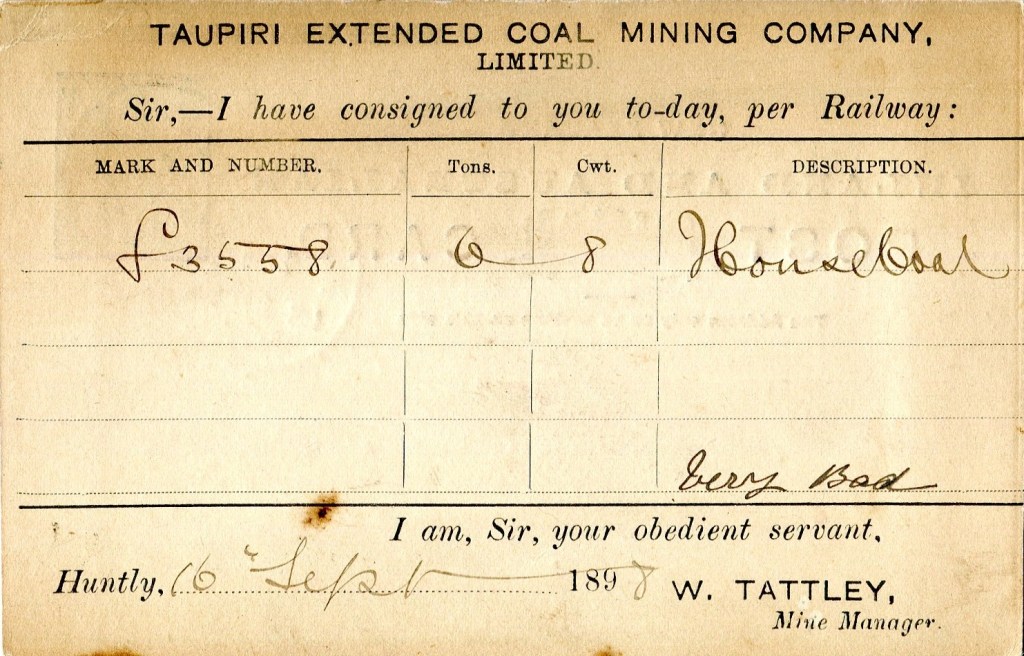 TAUPIRI EXTENDED COAL MINING COMPANY,
LIMITED.
Sir,—I have consigned to you to-day, per Railway:
MARK AND NUMBER. Tons. Cwt. DESCRIPTION.
£3558 6 8 House Coal
Very Bad
I am, Sir, your obedient servant,
Huntly, 16" Sept 1898 W. TATTLEY,
Mine Manager.